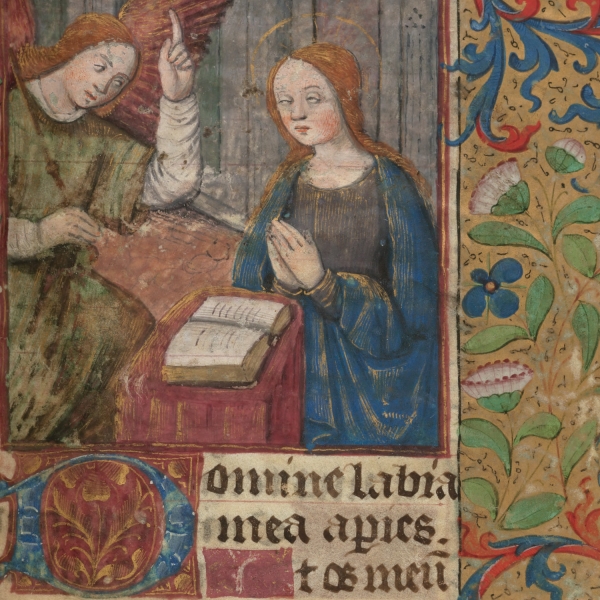 Domine labia
mea apies.
t os meū